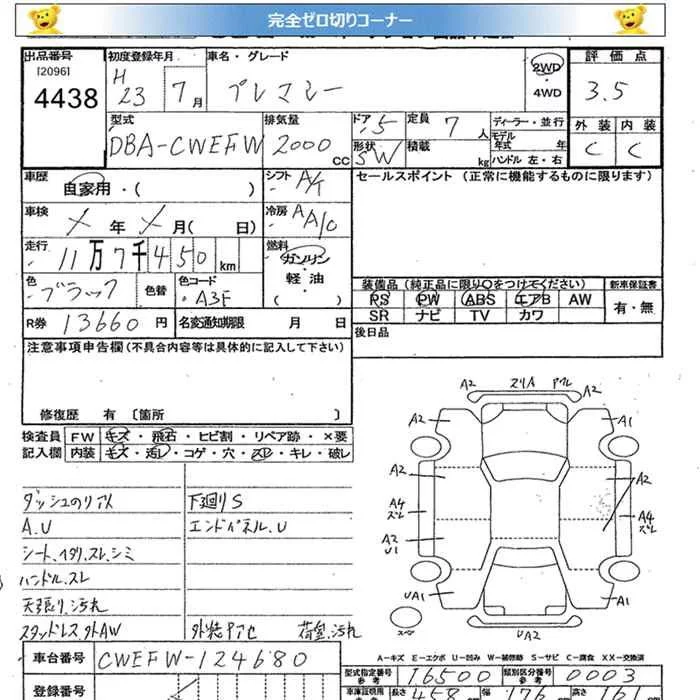 完全ゼロ切りコーナー
出品番号 初度登録年月 車名・グレード 2WD ・ 4WD 評価点
[2096]
4438 H 23 7月 プレマシー 3.5
型式 排気量 ドア 5 定員 7人 ディーラー・並行 外装 内装
DBA-CWEFW 2000cc 形状 SW 積載 kg モデル年式 年 ハンドル 左・右 C C
車歴 自家用・( ) シフト A/T セールスポイント (正常に機能するものに限ります)
車検 メ 年 メ 月( 日) 冷房 A A/C
走行 11万7千450km 燃料 ガソリン・軽油・( )
色 ブラック 色替 色コード A3F 装備品(純正品に限り○をつけてください) 新車保証書
PS PW ABS エアB AW 有・無
R券 13660円 名変通知期限 月 日 SR ナビ TV カワ
注意事項申告欄(不具合内容等は具体的に記入して下さい) 後日品
修復歴 有 〔箇所 〕
検査員 FW キズ・飛石・ヒビ割・リペア跡・×要
記入欄 内装 キズ・汚レ・コゲ・穴・スレ・キレ・破レ
A2 スリA アクレ A2
A2 A1
A2 A2
A4 スレ A4 スレ
A2 U1
UA1 A1
スペア UA2
下廻りS
A.U エンドパネル.U
シート.ヘタリ.スレ.シミ
ハンドル.スレ
天張り.汚れ
スタッドレス.外AW 荷室.汚れ
A-キズ E-エクボ U-凹み W-補修跡 S-サビ C-腐食 XX-交換済
車台番号 CWEFW-124680 型式指定番号 参考 16500 類別区分番号 参考 0003
登録番号 長さ 458 幅 176 高さ